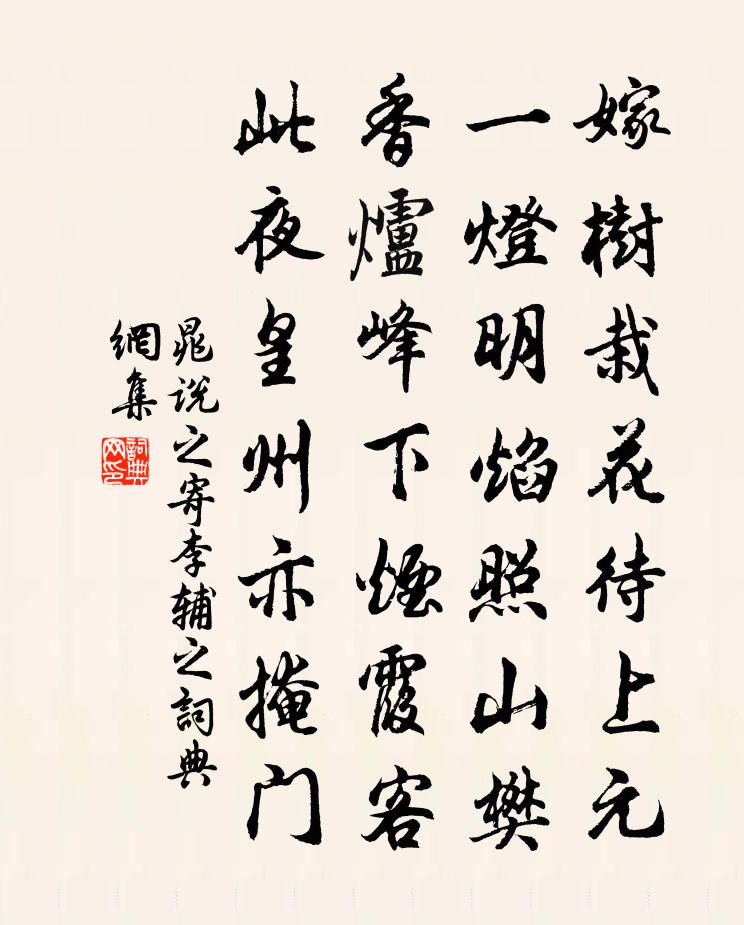 嫁樹栽花待上元
一燈明焰照山樊
香爐峰下煙霞客
此夜皇州亦掩門
晁說之寄李輔之詞典
網集
詞典
网印